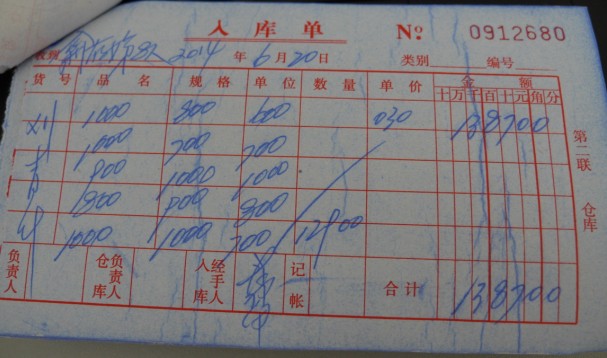 入库单 № 0912680
2014年6月20日 类别 编号
货号 品名 规格 单位 数量 单价 金额
十万千百十元角分
1000 800 600 030 138700
1000 700 700
800 1000 1000
1800 800 800
1000 1000 700 12900
负责人 仓库负责人 入库经手人 记帐 合计 138700
第二联 仓库